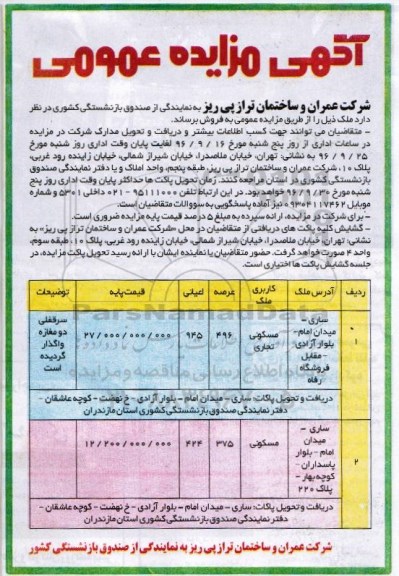 آگهی مزایده عمومی
شرکت عمران و ساختمان تراز پی ریز به نمایندگی از صندوق بازنشستگی کشوری در نظر
دارد ملک ذیل را از طریق مزایده عمومی به فروش برساند.
- متقاضیان می توانند جهت کسب اطلاعات بیشتر و دریافت و تحویل مدارک شرکت در مزایده
در ساعات اداری از روز پنج شنبه مورخ ۹۶/۹/۱۶ لغایت پایان وقت اداری روز شنبه مورخ
۹۶/۹/۲۵ به نشانی: تهران، خیابان ملاصدرا، خیابان شیراز شمالی، خیابان زاینده رود غربی،
پلاک ۱۰، شرکت عمران و ساختمان تراز پی ریز، طبقه پنجم، واحد املاک و یا دفتر نمایندگی صندوق
بازنشستگی کشوری در استان مراجعه کنند. زمان تحویل پاکت ها حداکثر پایان وقت اداری روز پنج
شنبه مورخ ۹۶/۹/۳۰ خواهد بود. در این ارتباط تلفن ۹۵۱۱۱۰۰۰-۰۲۱ داخلی ۵۳۰۱ و شماره
موبایل ۰۹۳۰۴۱۱۷۴۶۲ نیز آماده پاسخگویی به سووالات متقاضیان است.
- برای شرکت در مزایده، ارائه سپرده به مبلغ ۵ درصد قیمت پایه مزایده ضروری است.
- گشایش کلیه پاکت های دریافتی از متقاضیان در محل «شرکت عمران و ساختمان تراز پی ریز» به
نشانی: تهران، خیابان ملاصدرا، خیابان شیراز شمالی، خیابان زاینده رود غربی، پلاک ۱۰، طبقه سوم،
واحد ۴ صورت خواهد گرفت. حضور متقاضیان یا نماینده ایشان با ارائه رسید تحویل پاکت مزایده، در
جلسه گشایش پاکت ها اختیاری است.
ردیف آدرس ملک کاربری ملک عرصه اعیانی قیمت پایه توضیحات
۱ ساری - میدان امام - بلوار آزادی - مقابل فروشگاه رفاه مسکونی تجاری ۴۹۶ ۹۴۵ ۲۷/۰۰۰/۰۰۰/۰۰۰ سرقفلی دو مغازه واگذار گردیده است
دریافت و تحویل پاکات: ساری - میدان امام - بلوار آزادی - خ نهضت - کوچه عاشقان -
دفتر نمایندگی صندوق بازنشستگی کشوری استان مازندران
۲ ساری - میدان امام - بلوار پاسداران - کوچه بهار - پلاک ۲۲۰ مسکونی ۳۷۵ ۴۲۴ ۱۲/۲۰۰/۰۰۰/۰۰۰
دریافت و تحویل پاکات: ساری - میدان امام - بلوار آزادی - خ نهضت - کوچه عاشقان -
دفتر نمایندگی صندوق بازنشستگی کشوری استان مازندران
شرکت عمران و ساختمان تراز پی ریز به نمایندگی از صندوق بازنشستگی کشور
ParsNamadData